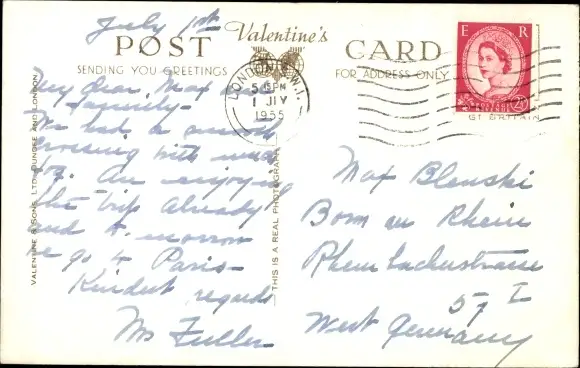 July 1st
POST Valentine's CARD
SENDING YOU GREETINGS FOR ADDRESS ONLY
E R
LONDON S.W.1.
5 PM
1 JLY
1955
GT BRITAIN
My dear Max and
family-
We had a smooth
crossing with much
fog. Am enjoying
the trip already
and to-morrow
we go to Paris-
Kindest regards
Mrs Fuller
Max Blenski
Bonn au Rhein
57 I
West Germany
VALENTINE & SONS, LTD., DUNDEE AND LONDON
THIS IS A REAL PHOTOGRAPH